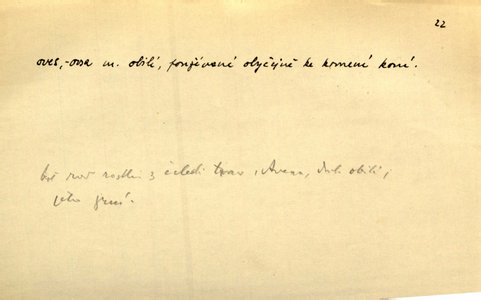 22
oves, -vsa m. obilí, používané obyčejně ke krmení koní.
bot. rod rostlin z čeledi trav, Avena, druh obilí;
jeho zrní.